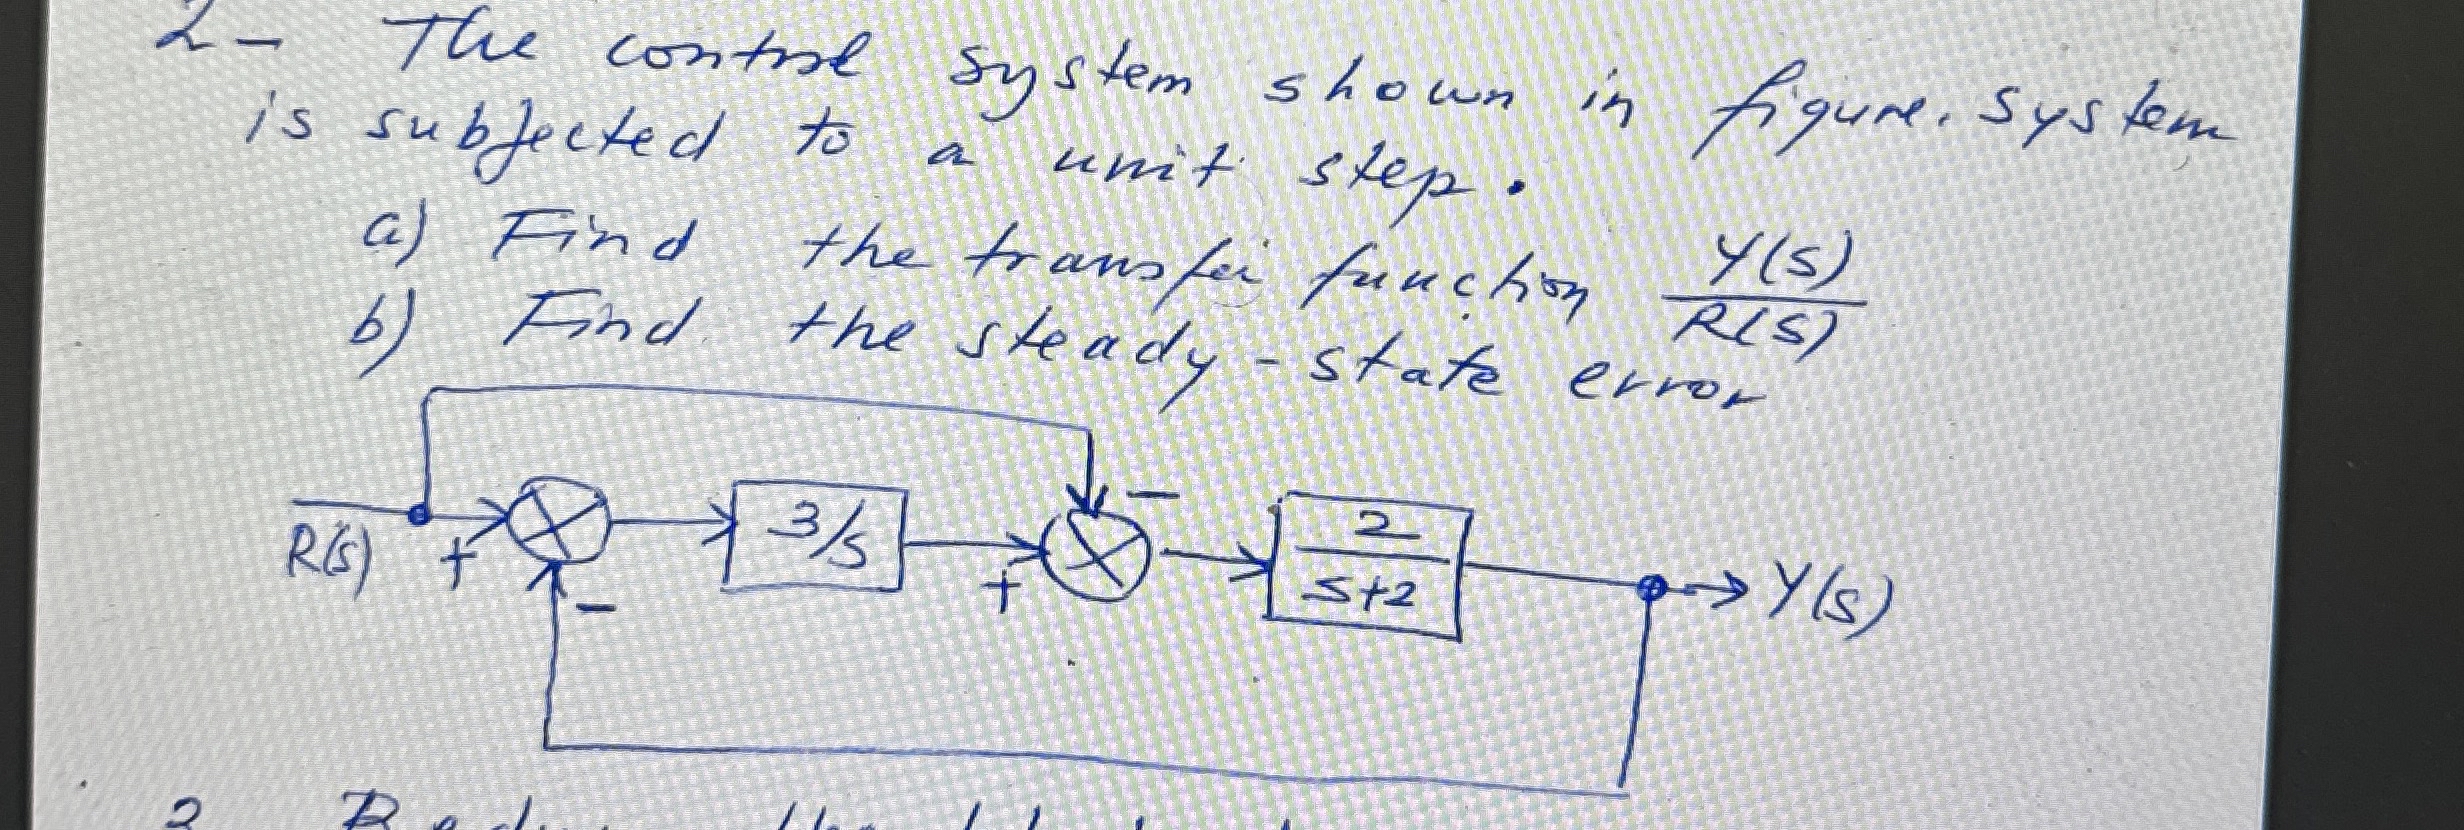 2- The control system shown in figure. System
is subjected to a unit step.
a) Find the transfer function Y(s)/R(s)
b) Find the steady-state error
R(s) + - 3/s + - 2/s+2 Y(s)